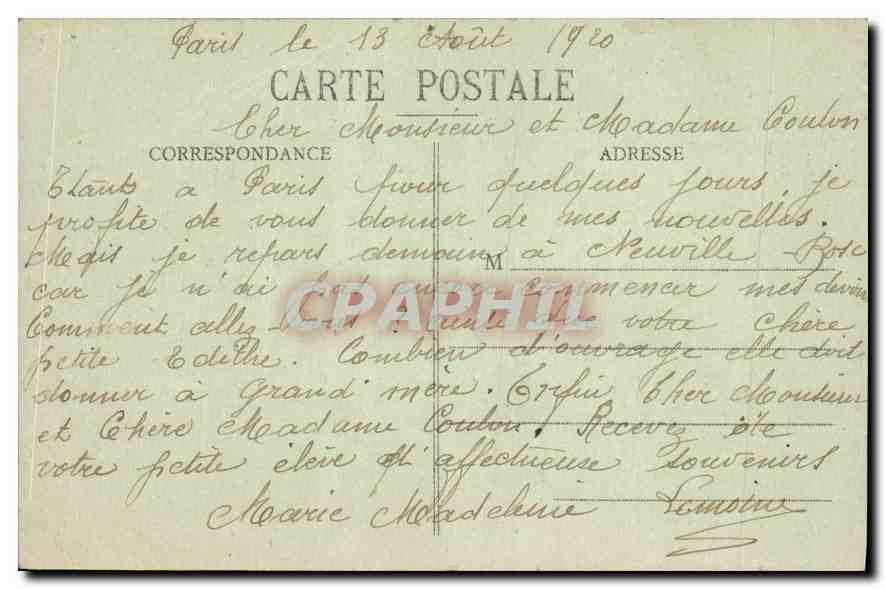 Paris le 13 Août 1920
CARTE POSTALE
Cher Monsieur et Madame Coulon
CORRESPONDANCE ADRESSE
Etant a Paris pour quelques jours, je
profite de vous donner de mes nouvelles.
Mais je repars demain à Neuville - Rose
M
car je n'ai pas encore commencer mes devoirs
CPAPHIL
Comment allez-vous que votre chère
petite Edithe. Combien d'ouvrage elle doit
donner à Grand'mère. Enfin Cher Monsieur
et Chère Madame Coulon. Recevez de
votre petite élève d'affectueuse souvenirs
Marie Madeleine Lemoine